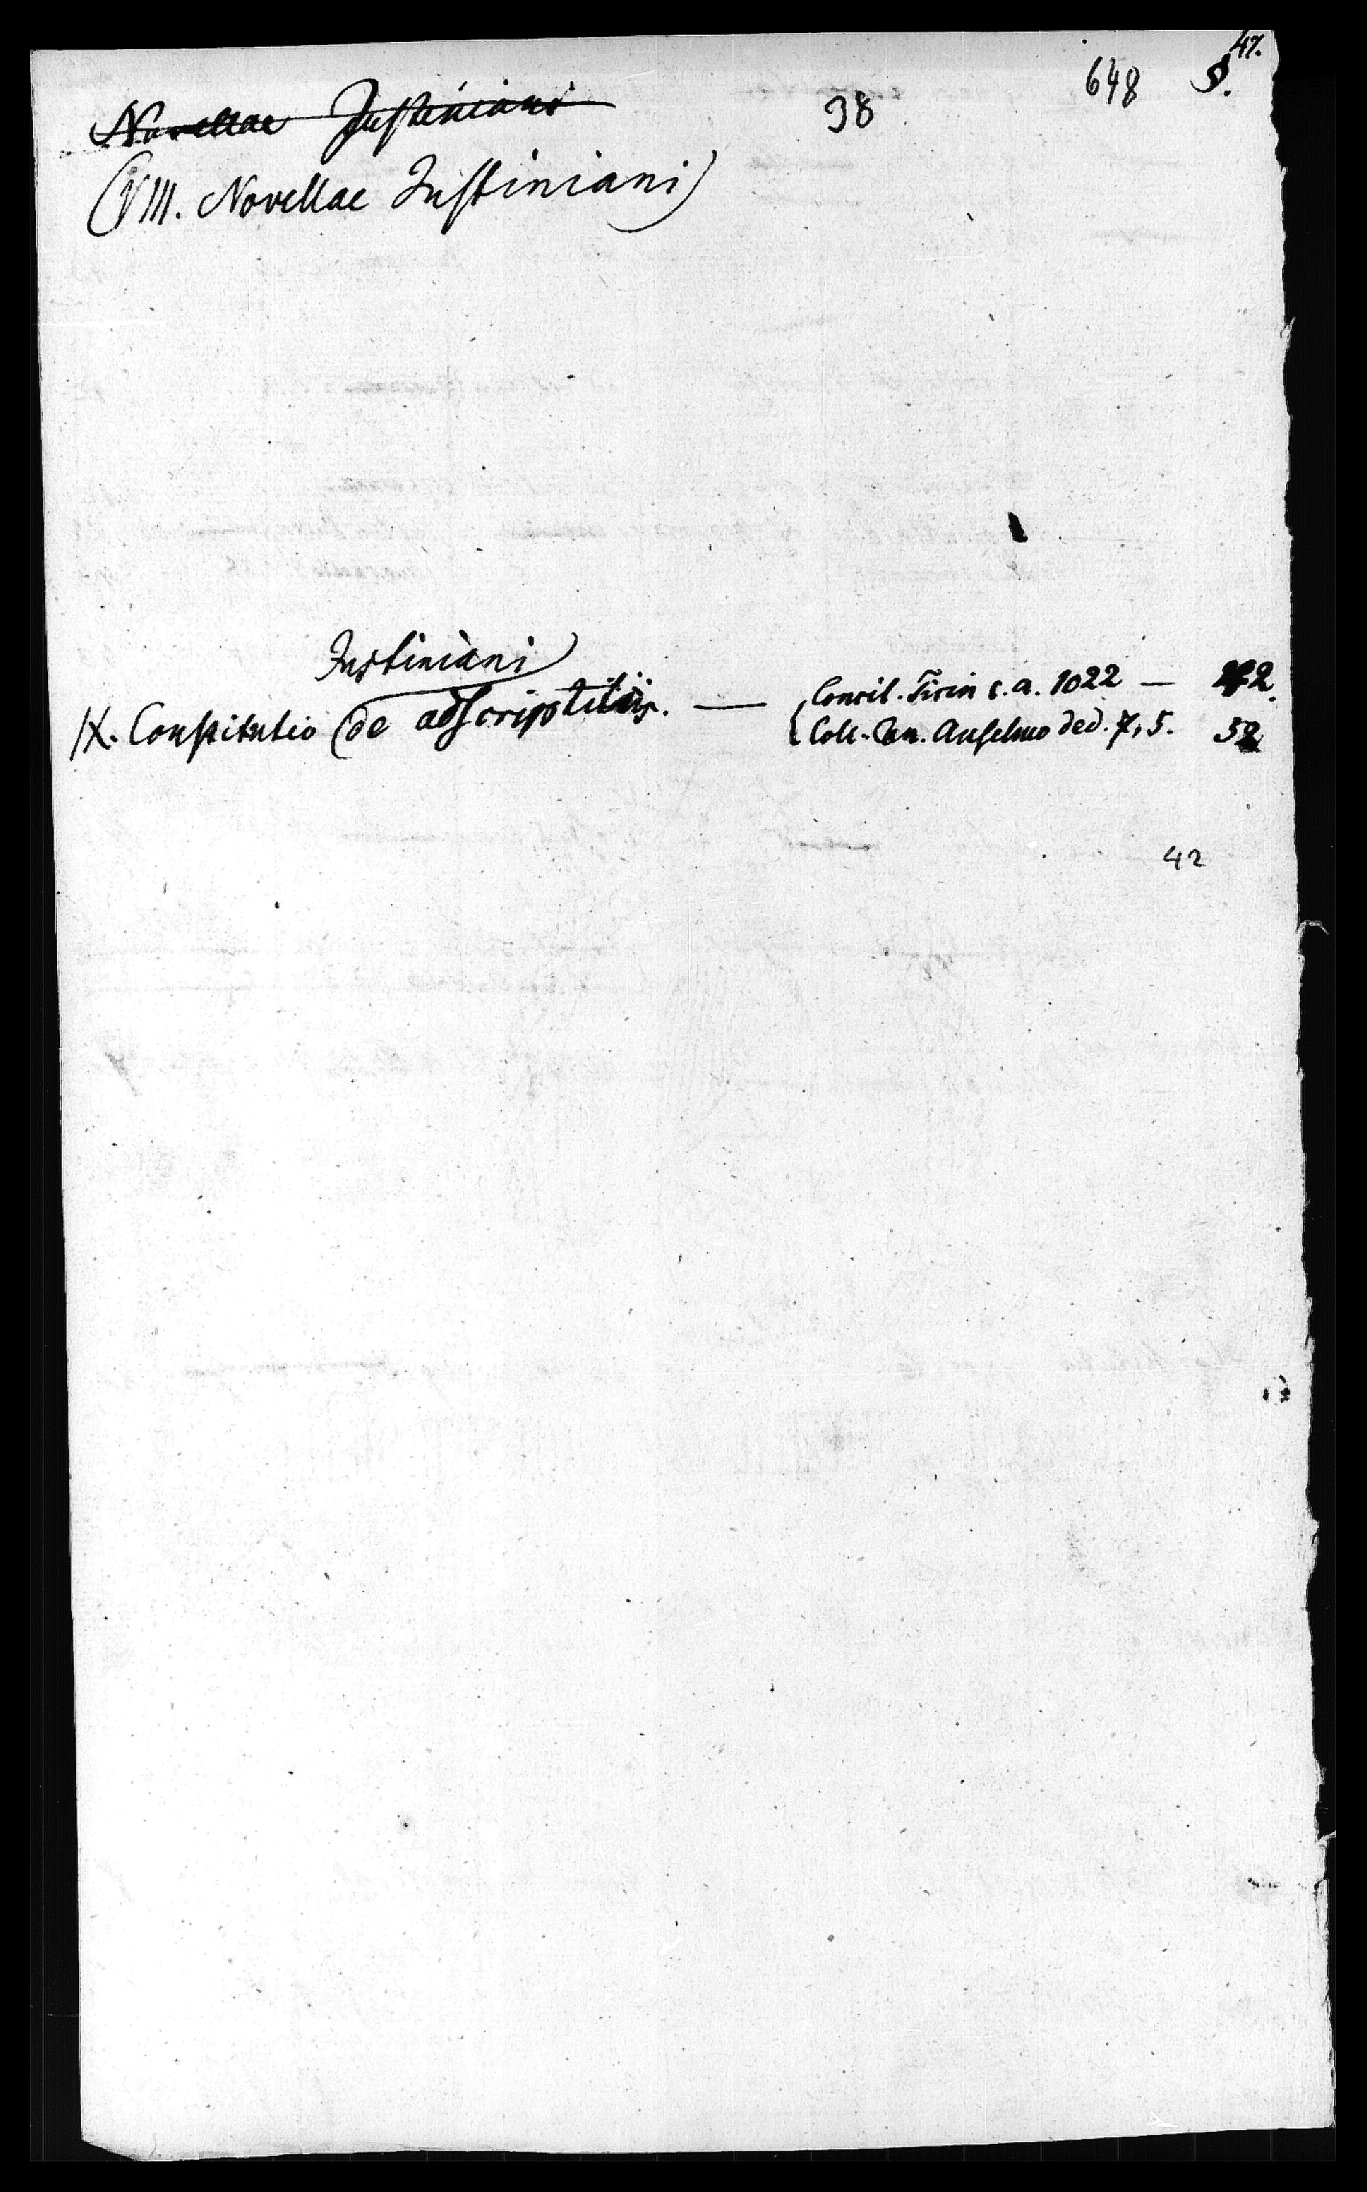 47.
648
~~Novellae Justiniani~~
38
(VIII. Novellae Justiniani)
Justiniani
IX. Constitutio (de adscriptitiis. — Concil. Ticin c. a. 1022 —
Coll. Can. Anselmo ded. 7, 5. 52
42